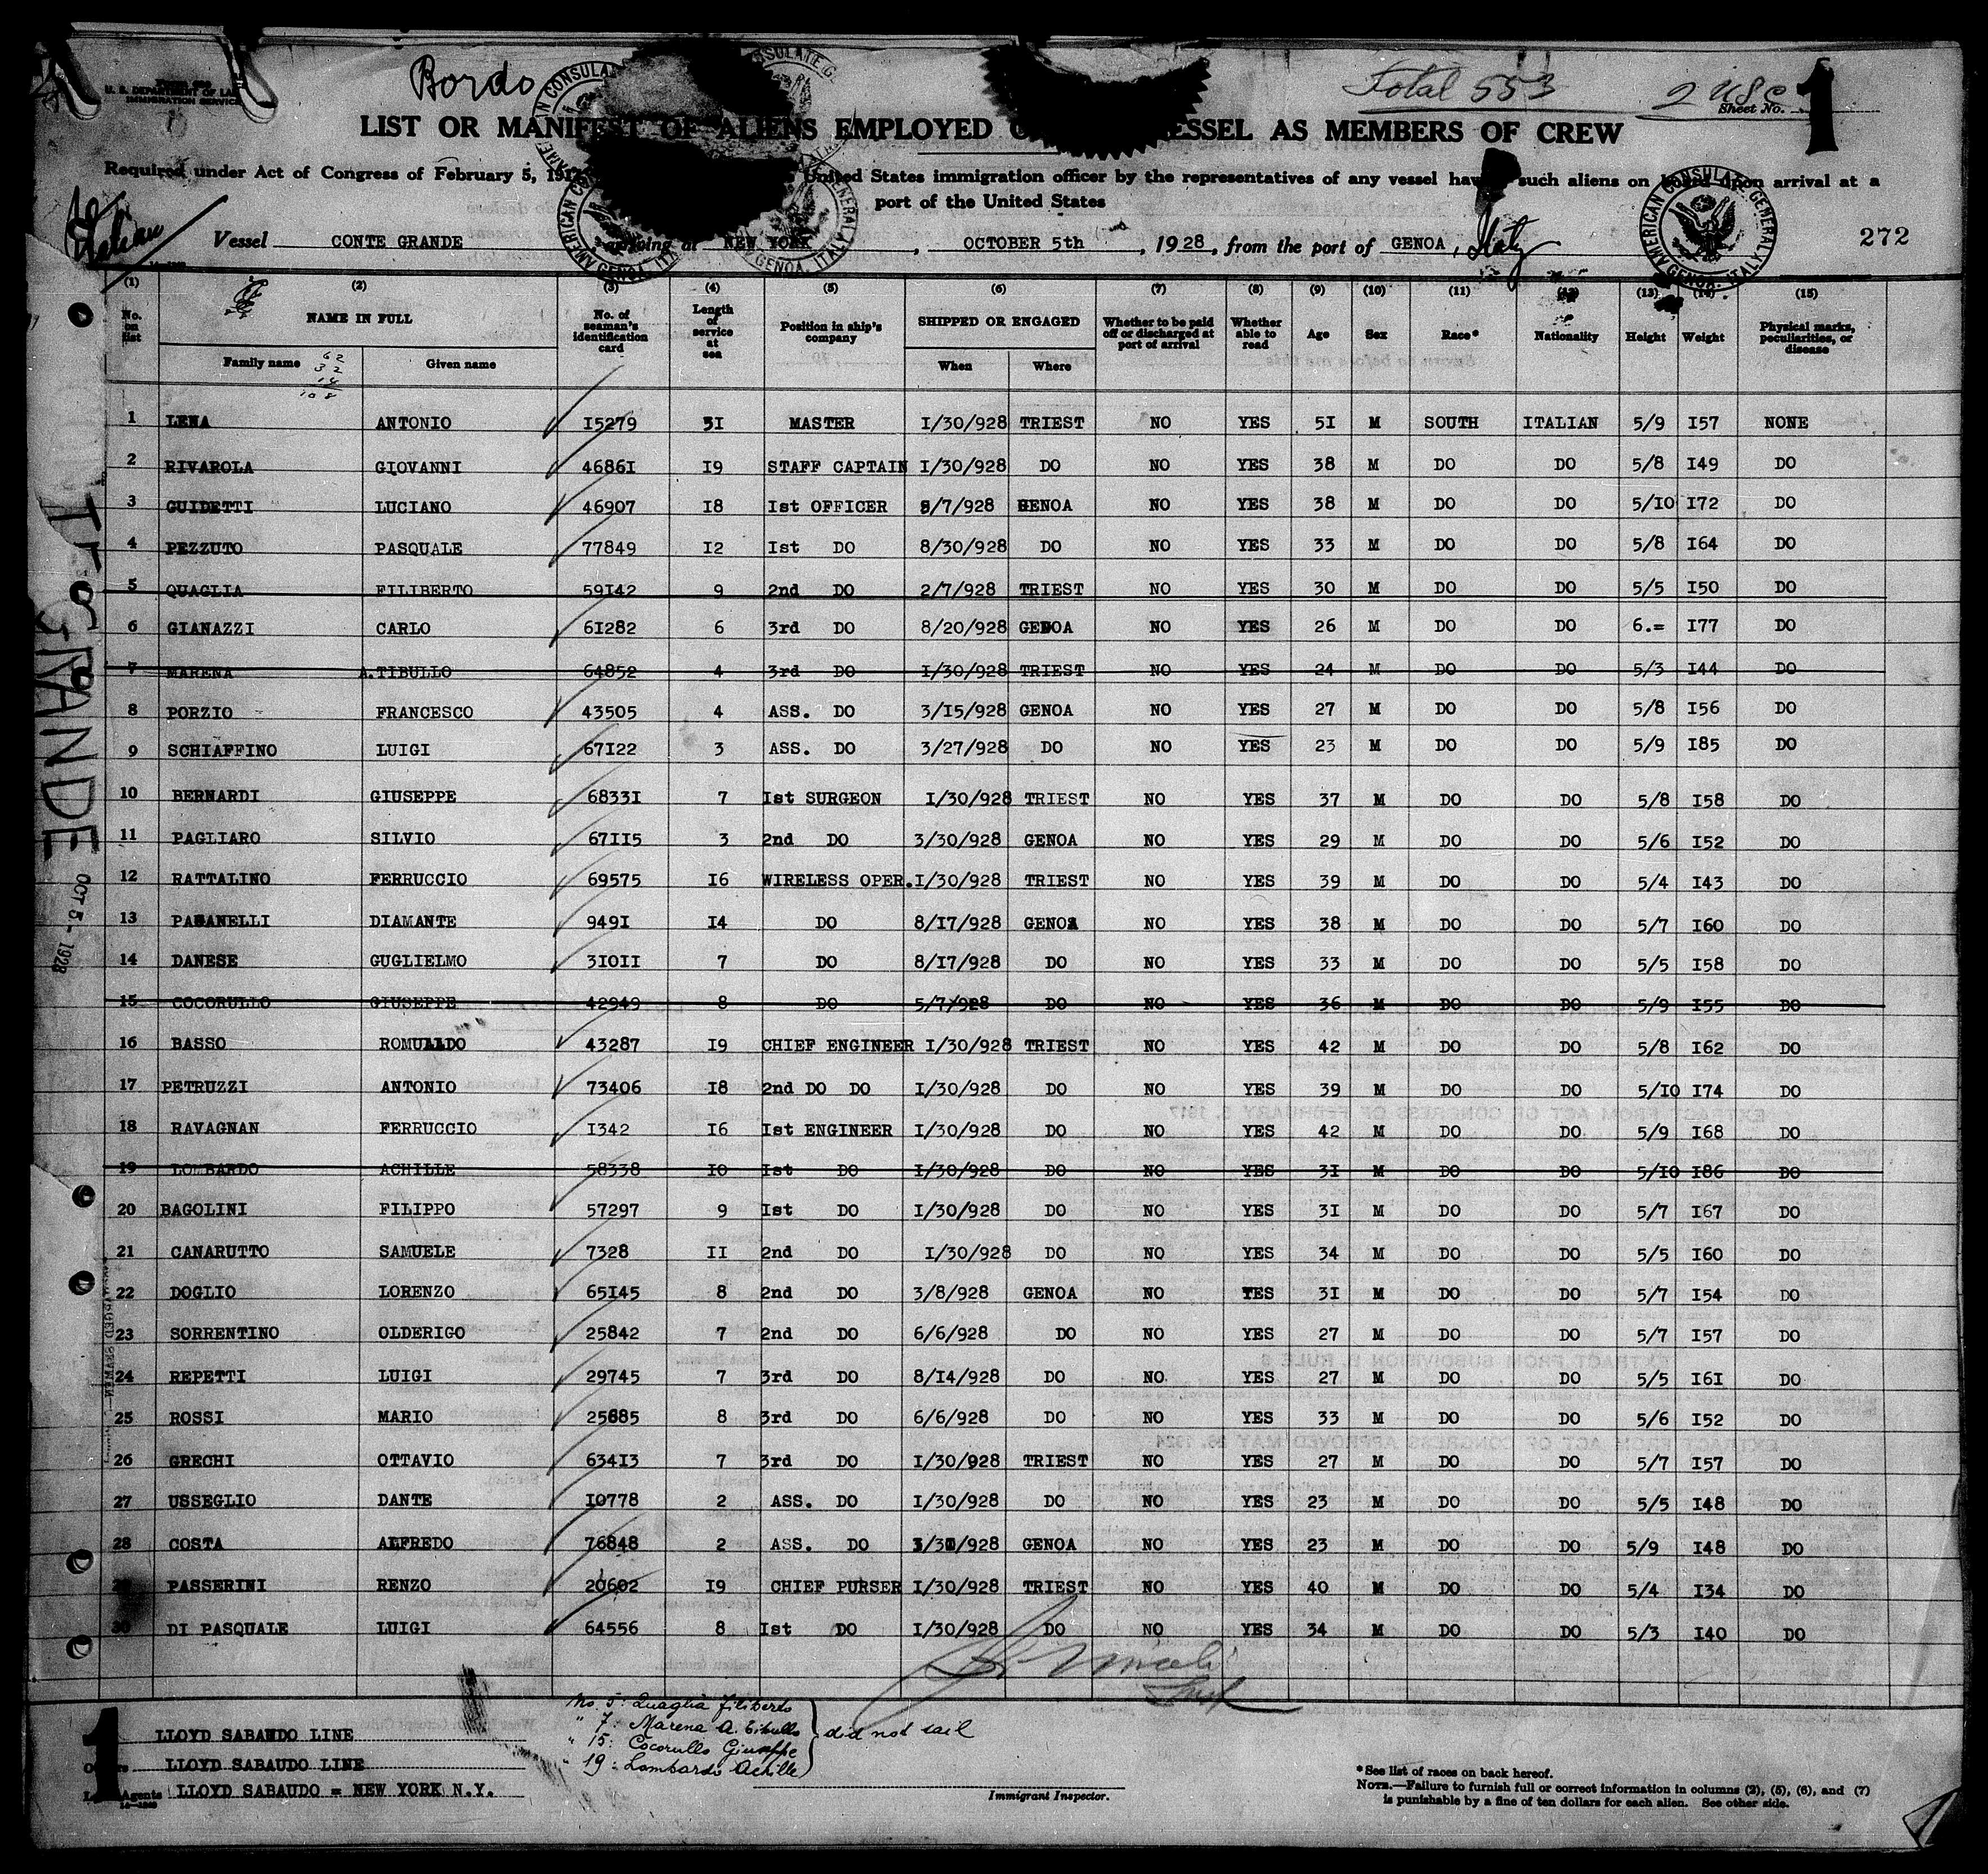 Bordo
Total 553
2 USC
U. S. DEPARTMENT OF
IMMIGRATION SERVICE
Sheet No. 1
LIST OR MANIFEST OF ALIENS EMPLOYED ESSEL AS MEMBERS OF CREW
Required under Act of Congress of February 5, 1917 United States immigration officer by the representatives of any vessel such aliens on board upon arrival at a
port of the United States
Italian
Vessel CONTE GRANDE arriving at NEW YORK, OCTOBER 5th, 1928, from the port of GENOA, Italy
272
AMERICAN CONSULATE GENERAL
GENOA, ITALY
(1) (2) (3) (4) (5) (6) (7) (8) (9) (10) (11) (12) (13) (14) (15)
No. on list NAME IN FULL No. of seaman's identification card Length of service at sea Position in ship's company SHIPPED OR ENGAGED Whether to be paid off or discharged at port of arrival Whether able to read Age Sex Race* Nationality Height Weight Physical marks, peculiarities, or disease
Family name Given name When Where
62
32
14
108
1 LENA ANTONIO I5279 3I MASTER I/30/928 TRIEST NO YES 5I M SOUTH ITALIAN 5/9 I57 NONE
2 RIVAROLA GIOVANNI 4686I I9 STAFF CAPTAIN I/30/928 DO NO YES 38 M DO DO 5/8 I49 DO
3 GUIDETTI LUCIANO 46907 I8 Ist OFFICER 8/7/928 GENOA NO YES 38 M DO DO 5/10 I72 DO
4 PEZZUTO PASQUALE 77849 I2 Ist DO 8/30/928 DO NO YES 33 M DO DO 5/8 I64 DO
5 QUAGLIA FILIBERTO 59I42 9 2nd DO 2/7/928 TRIEST NO YES 30 M DO DO 5/5 I50 DO
6 GIANAZZI CARLO 6I282 6 3rd DO 8/20/928 GENOA NO YES 26 M DO DO 6.= I77 DO
7 MARENA A.TIBULLO 64852 4 3rd DO I/30/928 TRIEST NO YES 24 M DO DO 5/3 I44 DO
8 PORZIO FRANCESCO 43505 4 ASS. DO 3/I5/928 GENOA NO YES 27 M DO DO 5/8 I56 DO
9 SCHIAFFINO LUIGI 67I22 3 ASS. DO 3/27/928 DO NO YES 23 M DO DO 5/9 I85 DO
10 BERNARDI GIUSEPPE 6833I 7 Ist SURGEON I/30/928 TRIEST NO YES 37 M DO DO 5/8 I58 DO
11 PAGLIARO SILVIO 67II5 3 2nd DO 3/30/928 GENOA NO YES 29 M DO DO 5/6 I52 DO
12 RATTALINO FERRUCCIO 69575 I6 WIRELESS OPER. I/30/928 TRIEST NO YES 39 M DO DO 5/4 I43 DO
13 PAGANELLI DIAMANTE 949I I4 DO 8/I7/928 GENOA NO YES 38 M DO DO 5/7 I60 DO
14 DANESE GUGLIELMO 3I0II 7 DO 8/I7/928 DO NO YES 33 M DO DO 5/5 I58 DO
15 COCORULLO GIUSEPPE 42949 8 DO 5/7/928 DO NO YES 36 M DO DO 5/9 I55 DO
16 BASSO ROMUALDO 43287 I9 CHIEF ENGINEER I/30/928 TRIEST NO YES 42 M DO DO 5/8 I62 DO
17 PETRUZZI ANTONIO 73406 I8 2nd DO DO I/30/928 DO NO YES 39 M DO DO 5/10 I74 DO
18 RAVAGNAN FERRUCCIO I342 I6 Ist ENGINEER I/30/928 DO NO YES 42 M DO DO 5/9 I68 DO
19 LOMBARDO ACHILLE 58338 I0 Ist DO I/30/928 DO NO YES 3I M DO DO 5/10 I86 DO
20 BAGOLINI FILIPPO 57297 9 Ist DO I/30/928 DO NO YES 3I M DO DO 5/7 I67 DO
21 CANARUTTO SAMUELE 7328 II 2nd DO I/30/928 DO NO YES 34 M DO DO 5/5 I60 DO
22 DOGLIO LORENZO 65I45 8 2nd DO 3/8/928 GENOA NO YES 3I M DO DO 5/7 I54 DO
23 SORRENTINO OLDERIGO 25842 7 2nd DO 6/6/928 DO NO YES 27 M DO DO 5/7 I57 DO
24 REPETTI LUIGI 29745 7 3rd DO 8/I4/928 DO NO YES 27 M DO DO 5/5 I6I DO
25 ROSSI MARIO 25685 8 3rd DO 6/6/928 DO NO YES 33 M DO DO 5/6 I52 DO
26 GRECHI OTTAVIO 634I3 7 3rd DO I/30/928 TRIEST NO YES 27 M DO DO 5/7 I57 DO
27 USSEGLIO DANTE I0778 2 ASS. DO I/30/928 DO NO YES 23 M DO DO 5/5 I48 DO
28 COSTA ALFREDO 76848 2 ASS. DO 3/30/928 GENOA NO YES 23 M DO DO 5/9 I48 DO
29 PASSERINI RENZO 20602 I9 CHIEF PURSER I/30/928 TRIEST NO YES 40 M DO DO 5/4 I34 DO
30 DI PASQUALE LUIGI 64556 8 Ist DO I/30/928 DO NO YES 34 M DO DO 5/3 I40 DO
GRANDE
OCT 5 - 1928
No. 5: Quaglia Filiberto
" 7: Marena A. Tibullo
" 15: Cocorullo Giuseppe
" 19: Lombardo Achille
did not sail
1
LLOYD SABAUDO LINE
LLOYD SABAUDO LINE
Agents LLOYD SABAUDO = NEW YORK N.Y.
Immigrant Inspector.
*See list of races on back hereof.
NOTE.—Failure to furnish full or correct information in columns (2), (5), (6), and (7)
is punishable by a fine of ten dollars for each alien. See other side.